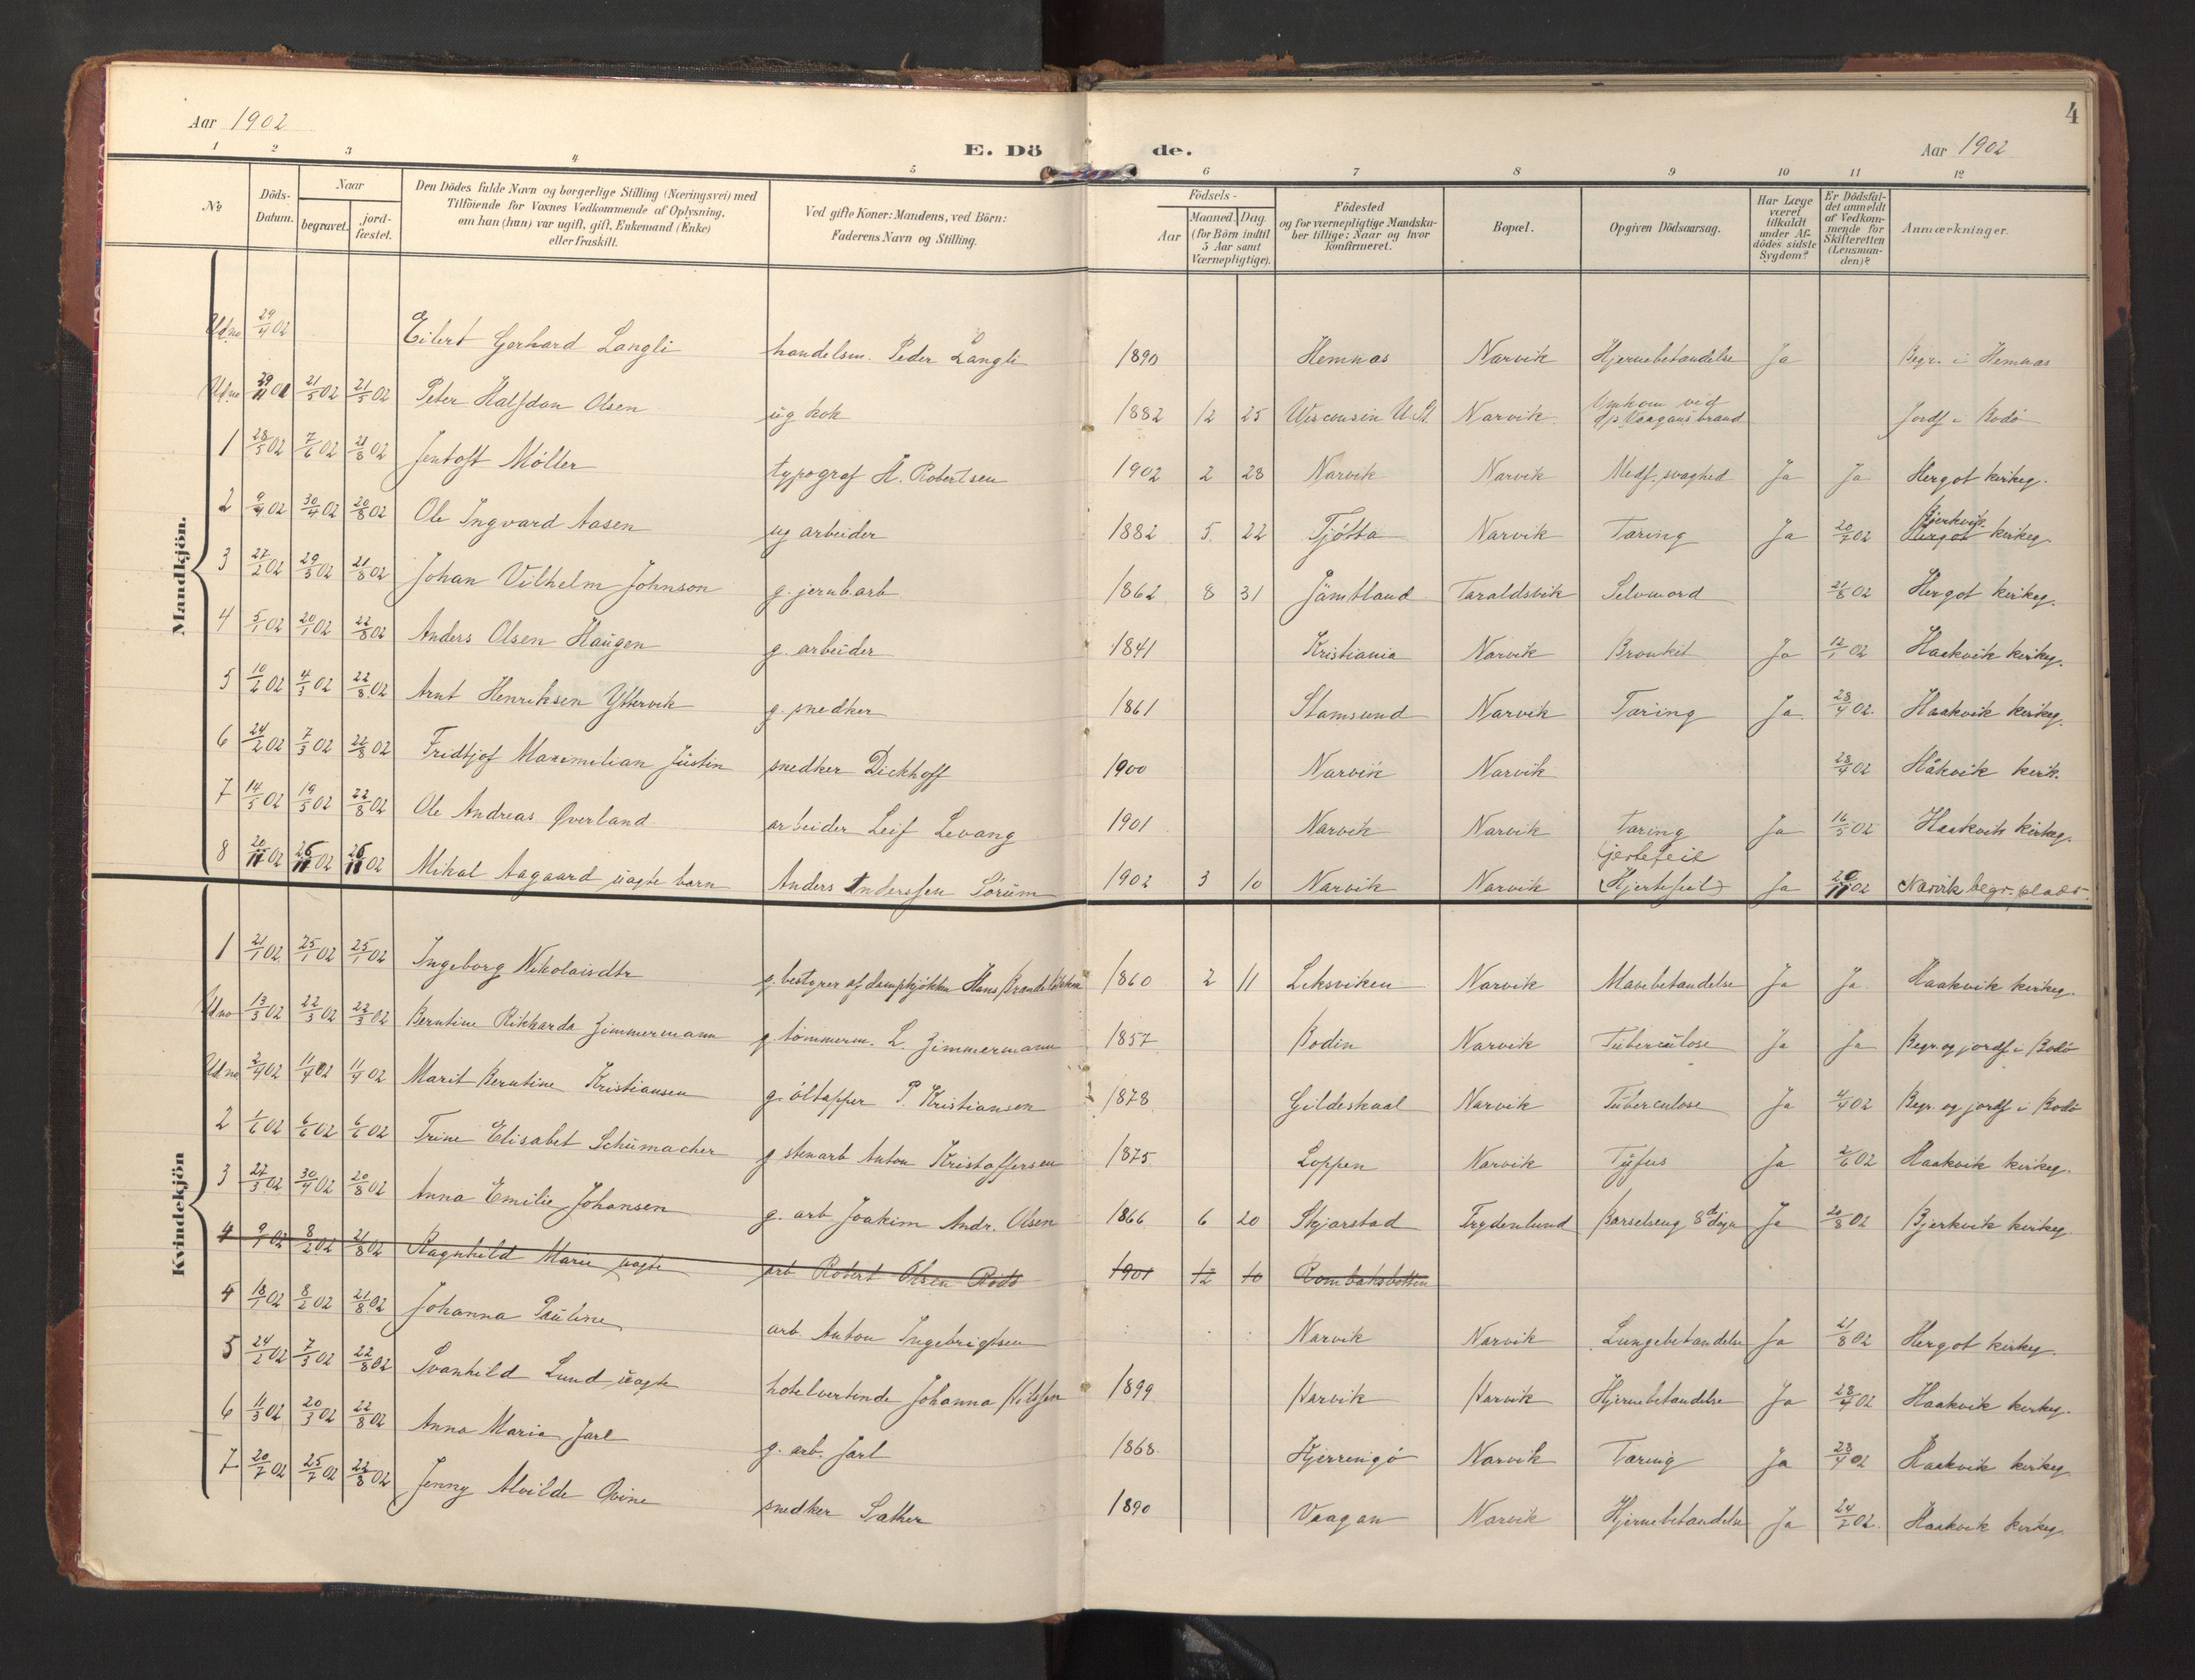 4
Aar 1902
E. Dö de.
Aar 1902
1 2 3 4 5 6 7 8 9 10 11 12
No
Döds-Datum.
Naar
begravet.
jord-fæstet.
Den Dödes fulde Navn og borgerlige Stilling (Næringsvei) med
Tilföiende for Voxnes Vedkommende af Oplysning,
om han (hun) var ugift, gift, Enkemand (Enke)
eller fraskilt.
Ved gifte Koner: Mandens, ved Börn:
Faderens Navn og Stilling.
Födsels-
Aar
Maaned. Dag.
(for Börn indtil
5 Aar samt
Værnepligtige).
Födested
og for værnepligtige Mandska-
ber tillige: Naar og hvor
Konfirmeret.
Bopæl.
Opgiven Dödsaarsag.
Har Læge
været
tilkaldt
under Af-
dödes sidste
Sygdom?
Er Dödsfal-
det anmeldt
af Vedkom-
mende for
Skifteretten
(Lensman-
den)?
Anmærkninger.
Mandkjön.
Ud no 29/4 02 Eilert Gerhard Langli handelsm. Peder Langli 1890 Hemnæs Narvik Hjernebetændelse Ja Begr. i Hemnæs
Ud no 29/11 01 21/5 02 21/5 02 Peter Halfdan Olsen ug kok 1882 12 25 Wisconsin U.St. Narvik Omkom ved d/s Vaagans brand Jordf i Bodø
1 28/5 02 7/6 02 21/8 02 Jentoft Møller typograf H. Robertsen 1902 2 28 Narvik Narvik Medf. svaghed Ja Ja Hergot kirkeg.
2 9/4 02 30/4 02 20/8 02 Ole Ingvard Aasen ug arbeider 1882 5 22 Tjøtta Narvik Tæring Ja 20/7 02 Hergot Bjerkvik kirkeg.
3 27/2 02 29/3 02 21/8 02 Johan Vilhelm Johnson g. jernb.arb 1862 8 31 Jämtland Taraldsvik Selvmord 21/8 02 Hergot kirkeg.
4 5/1 02 20/1 02 22/8 02 Anders Olsen Haugen g. arbeider 1841 Kristiania Narvik Bronkit Ja 12/1 02 Haakvik kirkeg.
5 10/2 02 4/3 02 22/8 02 Arnt Henriksen Yttervik g. snedker 1861 Stamsund Narvik Tæring Ja 23/4 02. Haakvik kirkeg.
6 24/2 02 7/3 02 22/8 02 Fridtjof Maximilian Justin snedker Dickhoff 1900 Narvik Narvik 23/4 02 Håkvik kirk.
7 14/5 02 19/5 02 22/8 02 Ole Andreas Øverland arbeider Leif Levang 1901 Narvik Narvik Tæring Ja 16/5 02 Haakvik kirkeg.
8 20/11 02 26/11 02 26/11 02 Mikal Aagaard uægte barn Anders Anderssen Sörum 1902 3 10 Narvik Narvik Hjertefeil (Hjertefeil) Ja 20/11 02 Narvik begr. plads.
Kvindekjön
1 21/1 02 25/1 02 25/1 02 Ingeborg Nikolaisdtr g. bestyrer af dampkjøkken Hans 1860 2 11 Leksviken Narvik Mavebetændelse Ja Ja Haakvik kirkeg.
Ud no 13/3 02 22/3 02 22/3 02 Berntine Rikharda Zimmermann g. tømmerm. L. Zimmermann 1857 Bodin Narvik Tuberculose Ja Ja Begr. og jordf i Bodø
Ud no 2/4 02 11/4 02 11/4 02 Marit Berntine Kristiansen g. øltapper P. Kristiansen 1878 Gildeskaal Narvik Tuberculose Ja 4/4 02 Begr. og jordf i Bodø
2 1/6 02 6/6 02 6/6 02 Trine Elisabet Schumacher g stenarb Anton Kristoffersen 1875 Loppen Narvik Tyfus Ja 2/6 02 Haakvik kirkeg.
3 27/3 02 30/4 02 20/8 02 Anna Emilie Johansen g. arb Joakim Andr. Olsen 1866 6 20 Skjærstad Frydenlund Barselseng 8de døgn Ja 20/8 02 Bjerkvik kirkeg.
4 9/1 02 8/2 02 21/8 02 Ragnhild Marie uægte arb Robert Olsen 1901 12 10 Rombaksbotten
4 18/1 02 8/2 02 21/8 02 Johanna Pauline arb. Anton Ingebrigtsen Narvik Narvik Lungebetændelse Ja 21/8 02 Hergot kirkeg.
5 24/2 02 7/3 02 22/8 02 Svanhild Lund uægte hotelvertinde Johanna Nilssen 1899 Narvik Narvik Hjernebetændelse Ja 23/4 02 Haakvik kirkeg.
6 11/3 02 20/3 02 22/8 02 Anna Maria Jarl g. arb. Jarl 1868 Kjerringø Narvik Tæring Ja 23/4 02 Haakvik kirkeg.
7 20/7 02 25/7 02 22/8 02 Jenny Alvilde Ovine snedker Sæther 1890 Vaagan Narvik Hjernebetændelse Ja 24/7 02. Haakvik kirkeg.